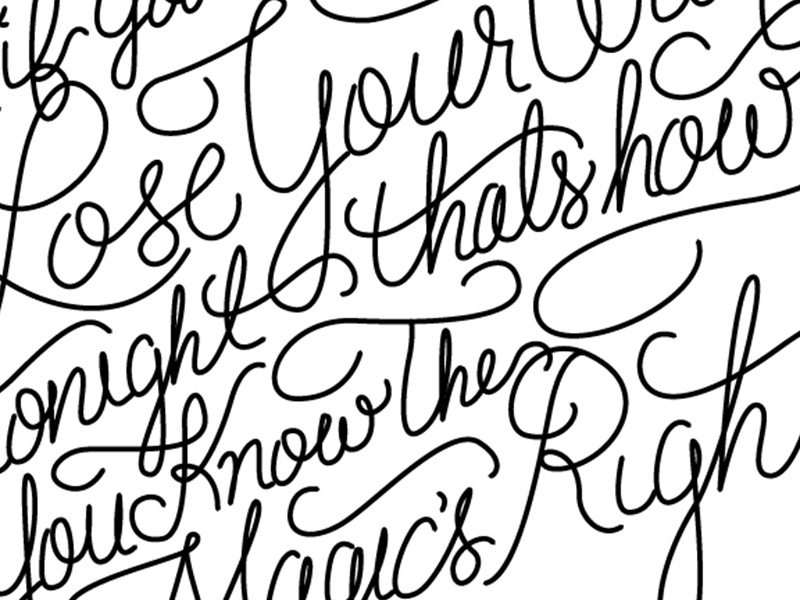 if you
Lose Your
tonight thats how
You Know The
Magic's Righ